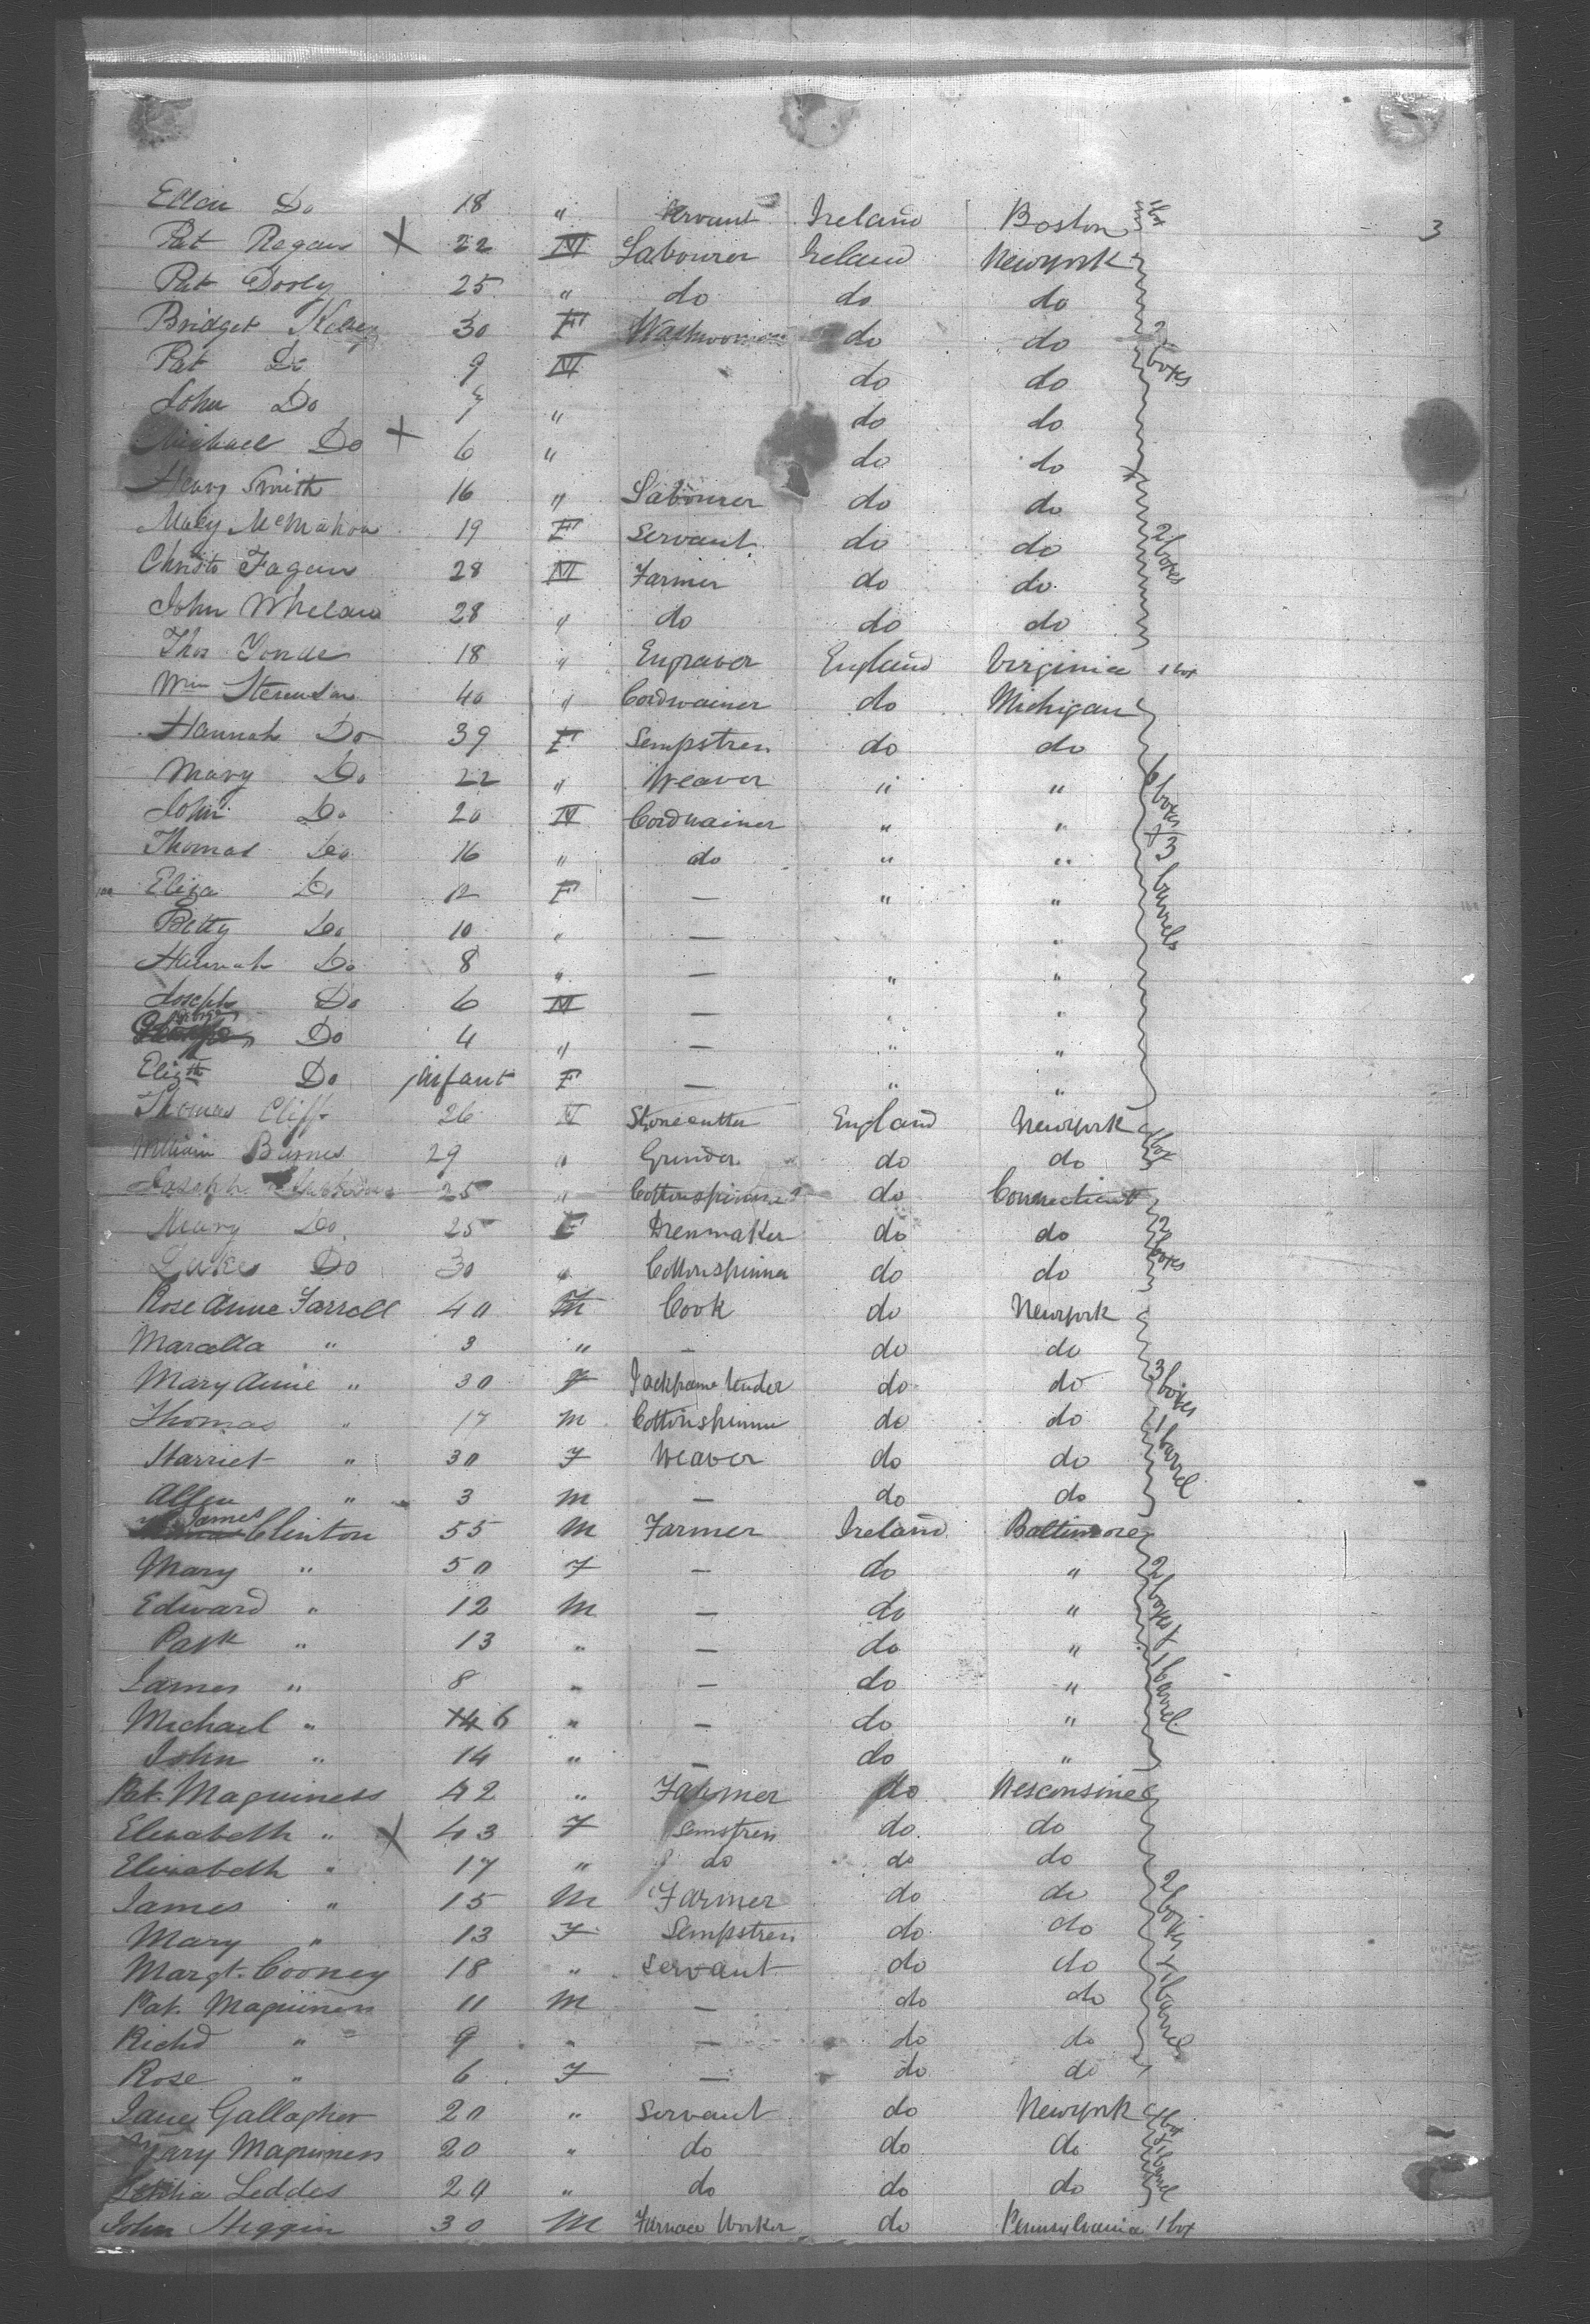 3
Ellen Do 18 " Servant Ireland Boston 1 box
Pat Regan X 22 M Labourer Ireland Newyork
Pat Dooly 25 " do do do
Bridget Kelsey 30 F Washwoman do do 2 boxes
Pat Do 9 M do do
John Do 7 " do do
Michael Do + 6 " do do
Henry Smith 16 " Labourer do do
Mary McMahon 19 F Servant do do 2 boxes
Christr Fagan 28 M Farmer do do
John Whelan 28 " do do do
Thos 18 " Engraver England Virginia 1 box
Wm Stevenson 40 " Cordwainer do Michigan
Hannah Do 39 F Sempstress do do
Mary Do 22 " Weaver " " 6 boxes + 3 barrels
John Do 20 M Cordwainer " "
Thomas Do 16 " do " "
Eliza Do 12 F — " "
Betty Do 10 " — "
Hannah Do 8 " — " "
Joseph Do 6 M — " "
George Do 4 " — " "
Elizth Do infant F — " "
Thomas Cliff 26 M Stonecutter England Newyork 1 box
William Barnes 29 " Grinder do do
Joseph 25 " Cottonspinner do Connecticut
Mary Do 25 F Dressmaker do do 2 boxes
Do 30 " Cottonspinner do do
Rose Anne Farrell 40 Cook do Newyork
Marcella " 3 " — do do
Mary Anne " 30 F Jackframe tender do do 3 boxes 1 barrel
Thomas " 17 M Cottonspinner do do
Harriet " 30 F Weaver do do
Allen " 3 M — do do
James Clinton 55 M Farmer Ireland Baltimore
Mary " 50 F — do " 2 boxes & 1 barrel
Edward " 12 M — do "
Patk " 13 " — do "
James " 8 " — do "
Michael " 14 6 " — do "
John " 14 " — do "
Pat. Maguiness 42 " Farmer do Wesconsine
Elisabeth " X 43 F Semstress do do
Elisabeth " 17 " do do do
James " 15 M Farmer do do 2 boxes & 1 barrel
Mary " 13 F Sempstress do do
Margt. Cooney 18 " Servant do do
Pat. Maguiness 11 M — do do
Richd " 9 " — do do
Rose " 6 F — do do
Jane Gallagher 20 " Servant do Newyork 1 box & 1 barrel
Mary Maguiness 20 " do do do
Letitia Leddes 20 " do do do
John Higgin 30 M Furnace Worker do Pennsylvania 1 box